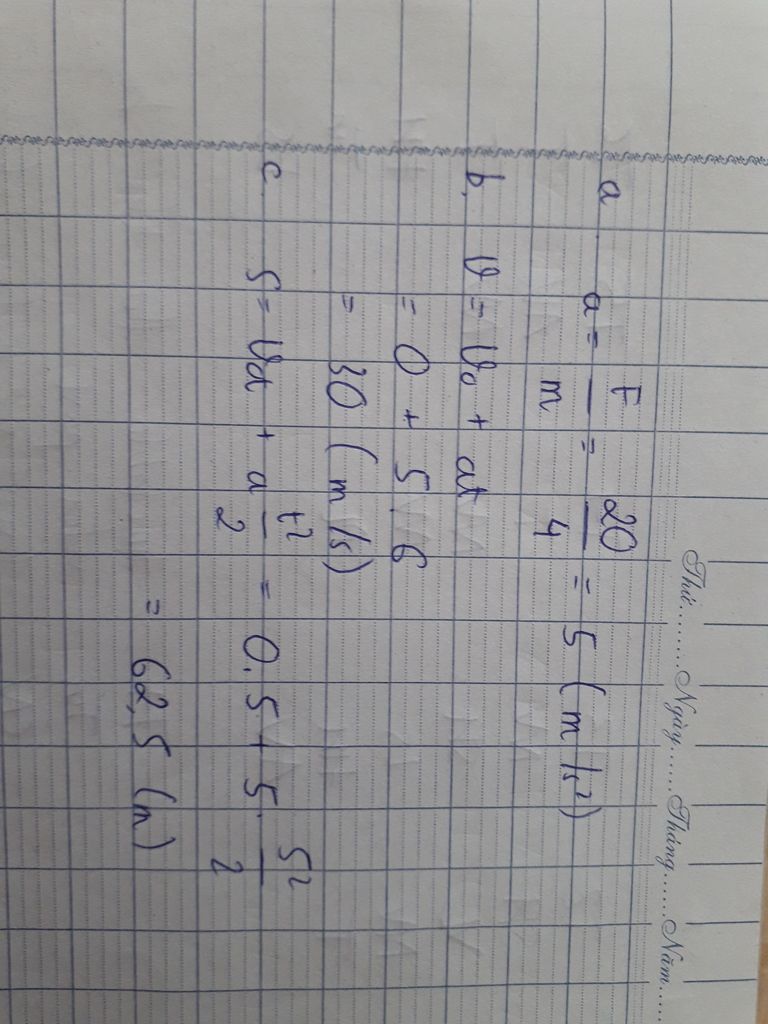 Thứ.........Ngày.......Tháng.......Năm....
a. a = F/m = 20/4 = 5 (m/s²)
b. v = v₀ + at
= 0 + 5.6
= 30 (m/s)
c. s = v₀t + a t²/2 = 0.5 + 5. 5²/2
= 62,5 (m)